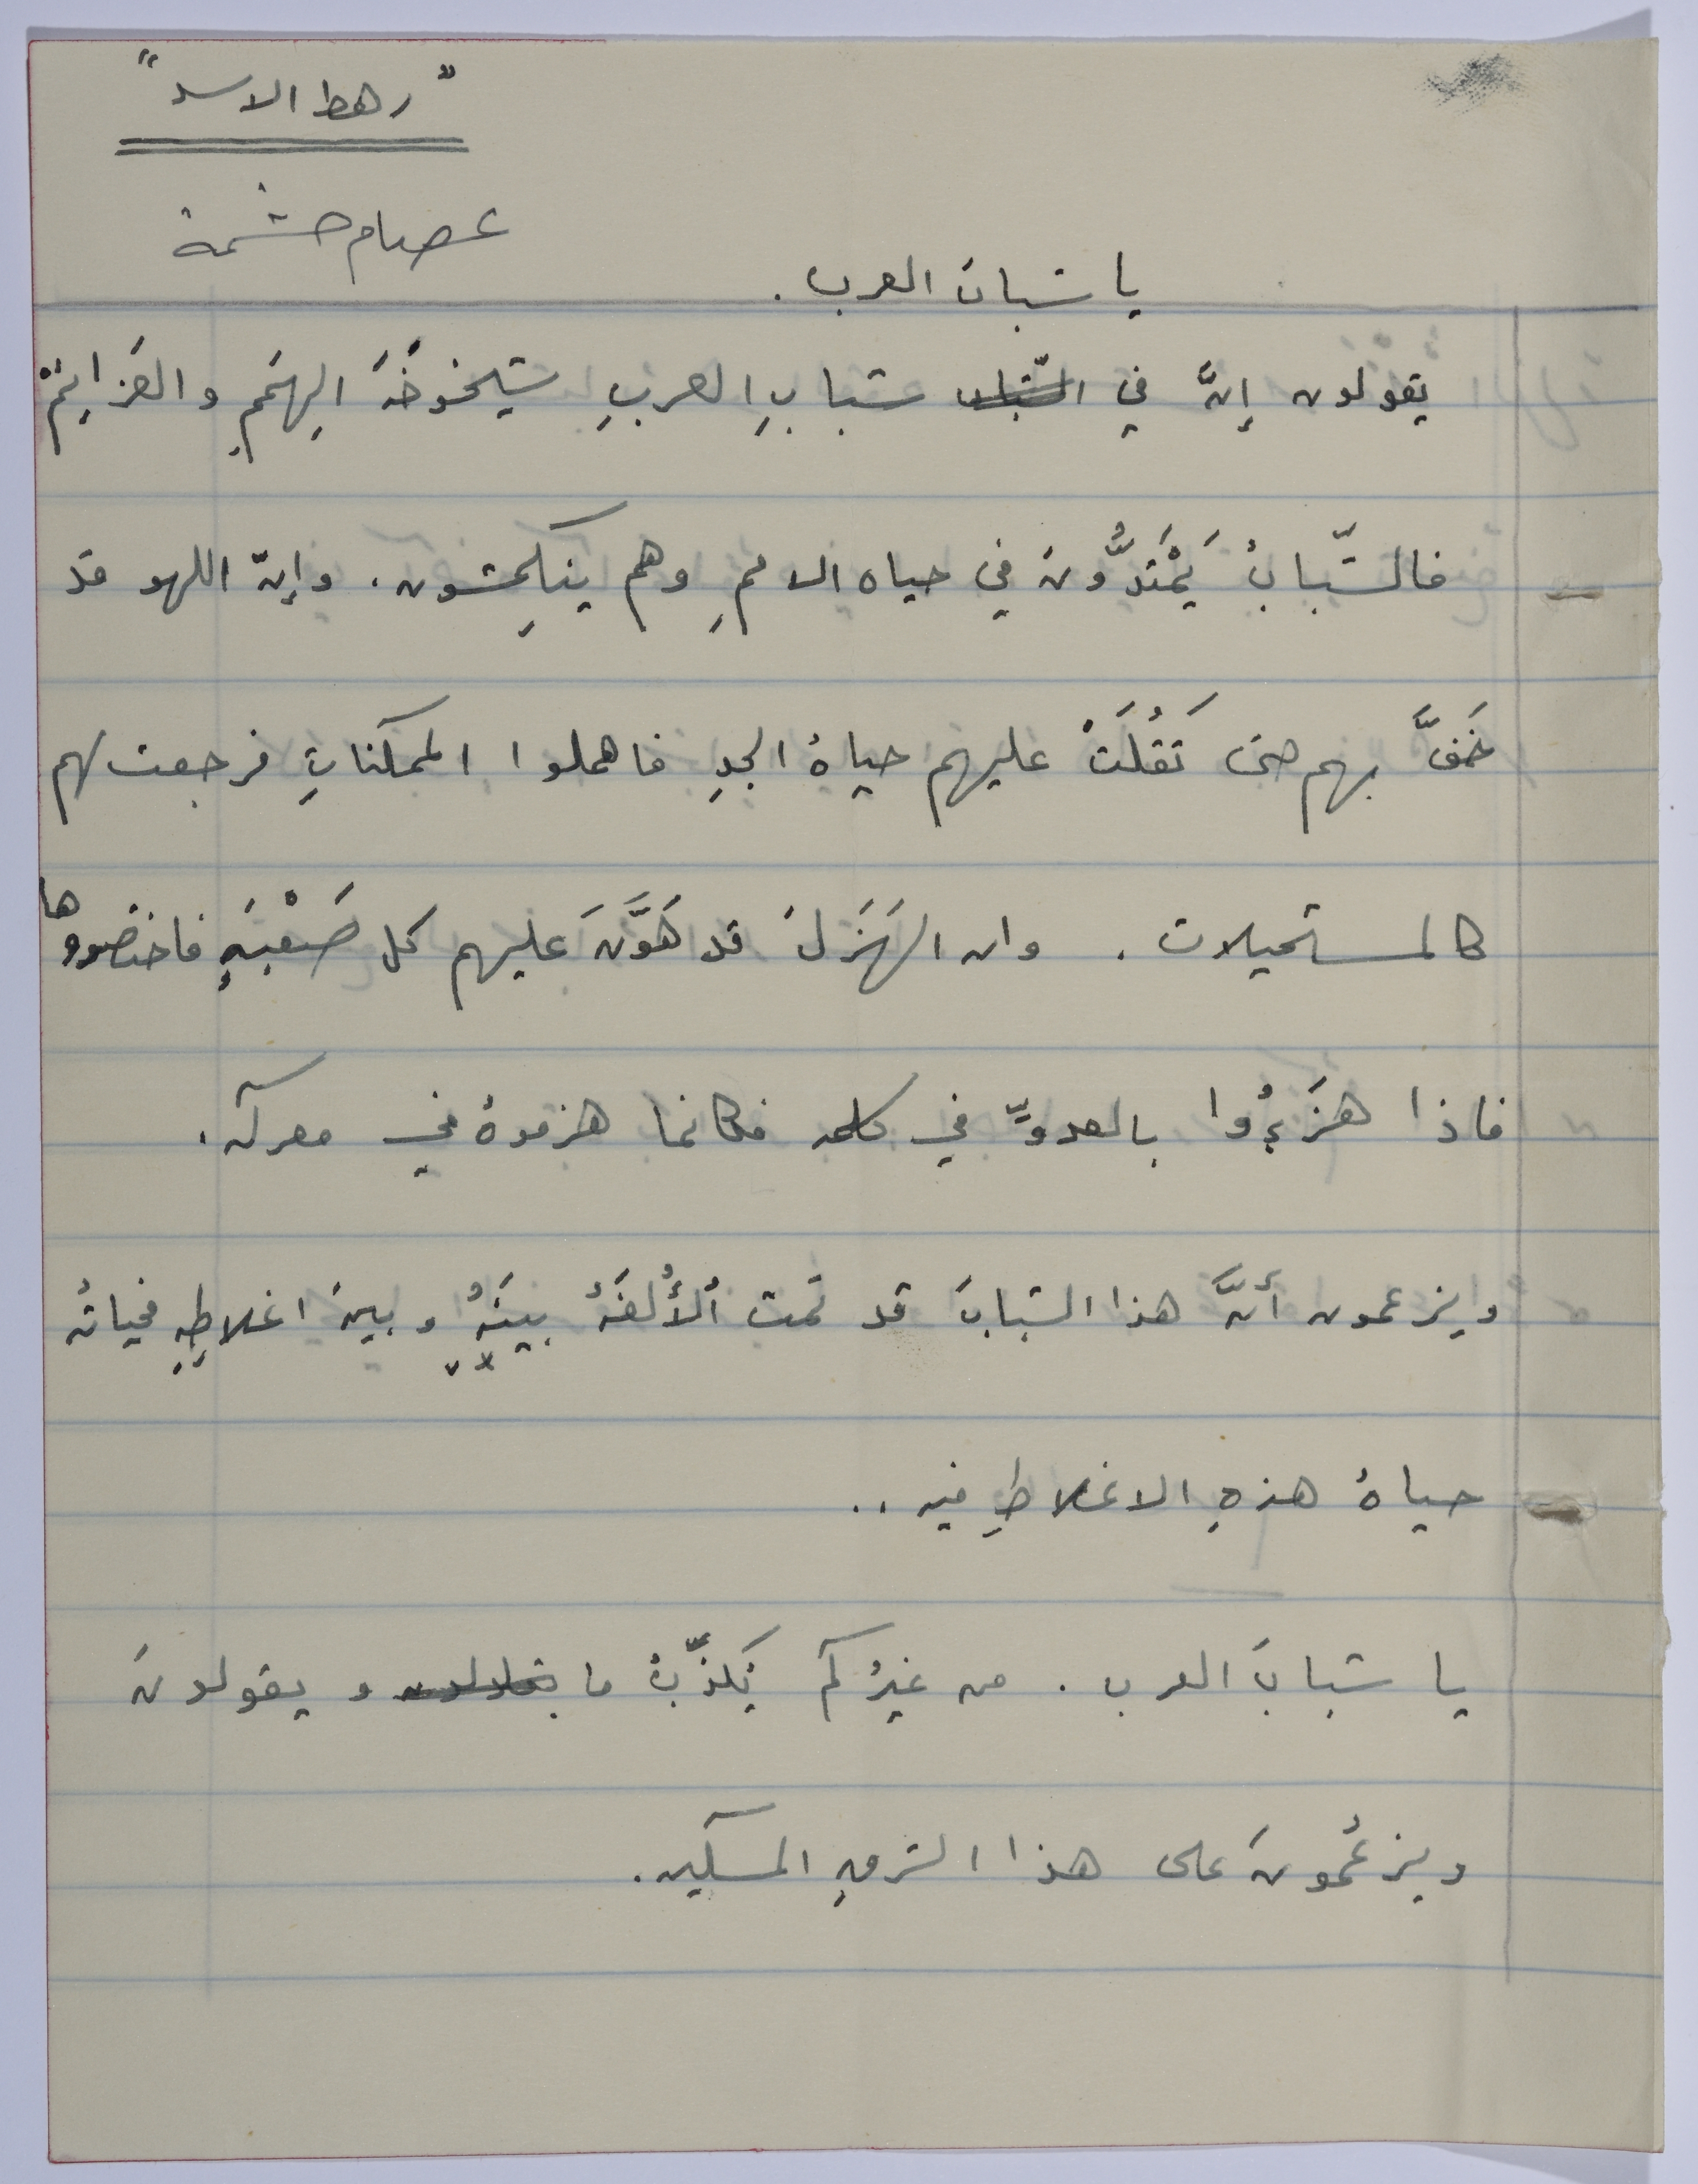 "رهط الاسد"
عصام حشمة
يا شبابَ العرب .
يقولون إنَّ في الشباب شبابِ العربِ شيخوخَةَ الهِمَمِ والعَزائِمْ
فالشّبابُ يَمْتَدُّونَ في حياه الاممِ وهم ينكمِشون . وإنّ اللهو قد
خَفَّ بهم حتى ثَقُلَتْ عليهم حياةُ الجدِ فاهملوا الممكناتِ فرجعت لهم
كالمستحيلات . وان الهَزَلَ قد هَوَّنَ عليهم كل صَعْبَةٍ فاختصروها
فاذا هزَءُوا بالعدوِّ في كلمه فكانما هزموهُ في معركه .
ويزعمون أنَّ هذا الشبابَ قد تمت اُلأُلفَهُ بينَهُ وبينَ اغلاطِهِ فحياتُه
حياةُ هذهِ الاغلاطِ فيه ..
يا شبابَ العرب . من غيرُكم يُكذّبُ ما يقولون و يقولونَ
ويزعُمونَ على هذا الشرقِ المسكين .